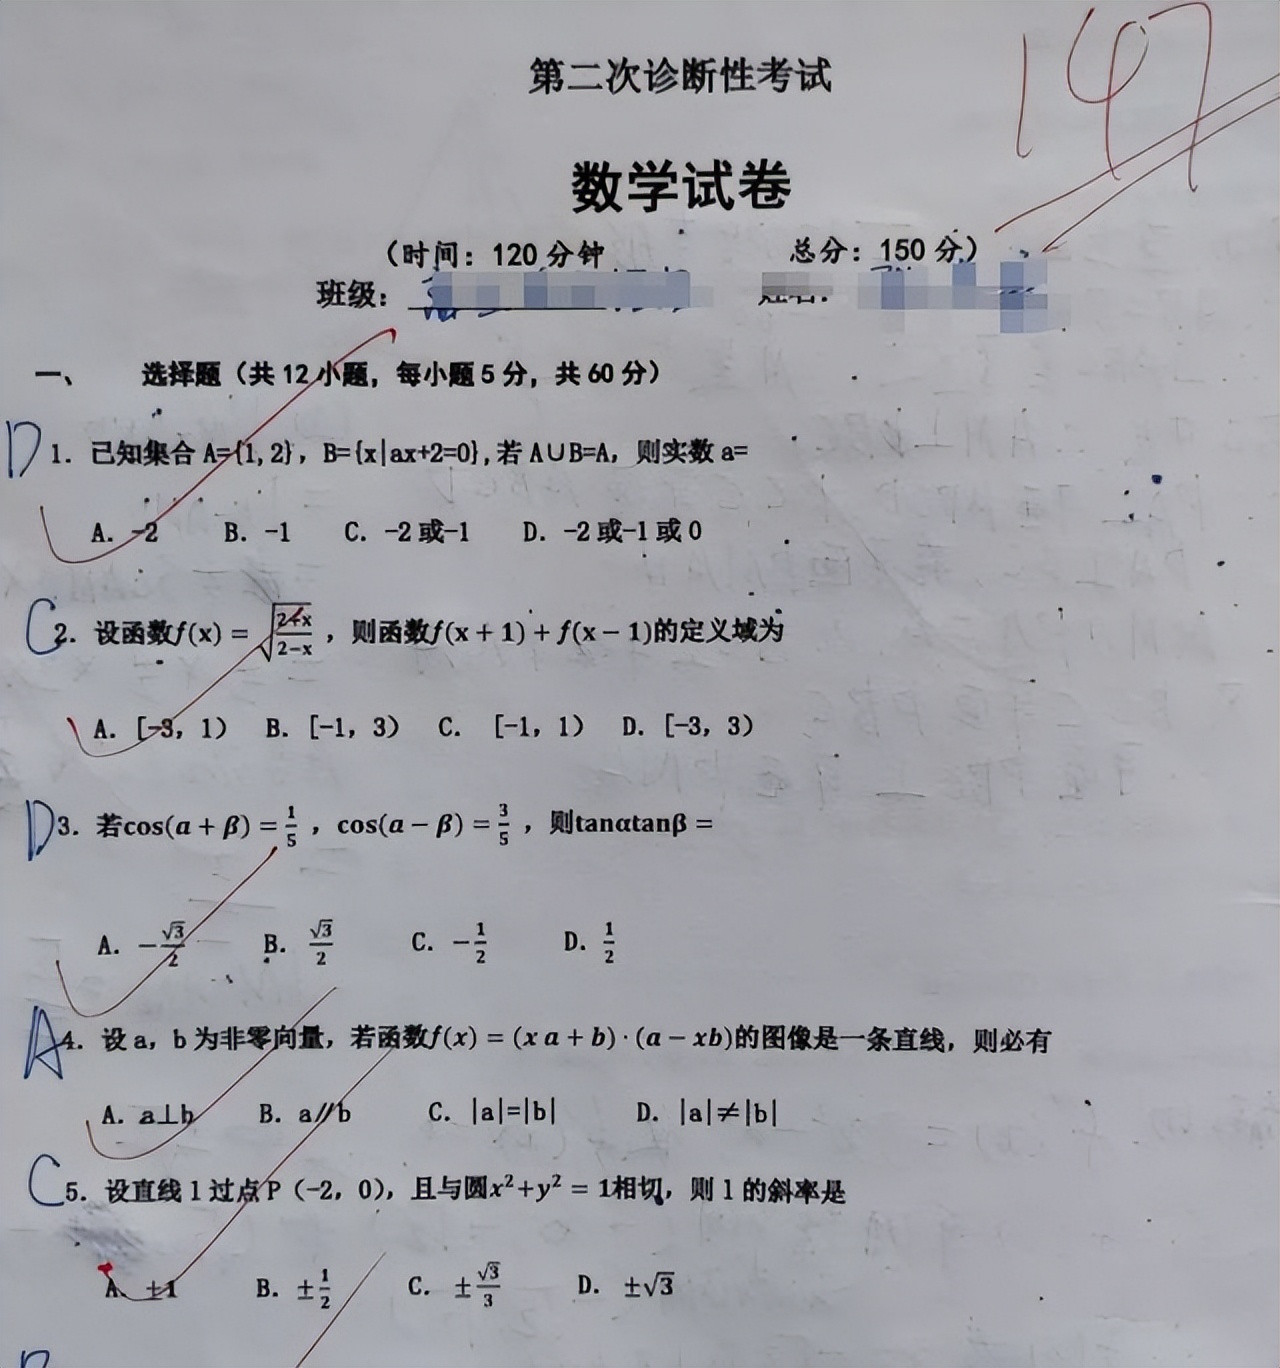 147
第二次诊断性考试
数学试卷
（时间：120 分钟 总分：150 分）
班级： 姓名：
一、 选择题（共 12 小题，每小题 5 分，共 60 分）
D 1. 已知集合 A={1, 2}，B={x|ax+2=0},若 A∪B=A，则实数 a=
A. -2 B. -1 C. -2 或-1 D. -2 或-1 或 0
C 2. 设函数f(x) = √((2+x)/(2-x))，则函数f(x + 1) + f(x − 1)的定义域为
A. [-3, 1） B. [-1, 3） C. [-1, 1） D. [-3, 3）
D 3. 若cos(α + β) = 1/5，cos(α − β) = 3/5，则tanαtanβ =
A. −√3/2 B. √3/2 C. −1/2 D. 1/2
A 4. 设 a，b 为非零向量，若函数f(x) = (x a + b) · (a − xb)的图像是一条直线，则必有
A. a⊥b B. a∥b C. |a|=|b| D. |a|≠|b|
C 5. 设直线 l 过点 P（-2, 0），且与圆x²+y² = 1相切，则 l 的斜率是
A. ±1 B. ±1/2 C. ±√3/3 D. ±√3